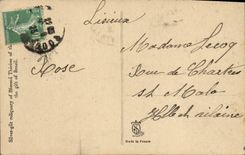 Lisieux
Madame Lecoq
Rose
Rue de Chartres
St Malo
Ille et vilaine
Silver-gilt reliquary of Blessed Thérèse of the
the gift of Brazil.
Made in France